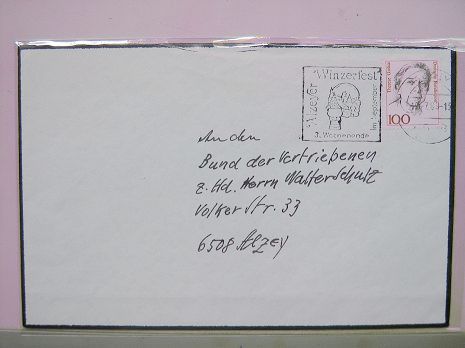 Alzeyer Winzerfest
im September
3. Wochenende
100
An den
Bund der Vertriebenen
z. Hd. Herrn Walter Schulz
Volkerstr. 33
6508 Alzey